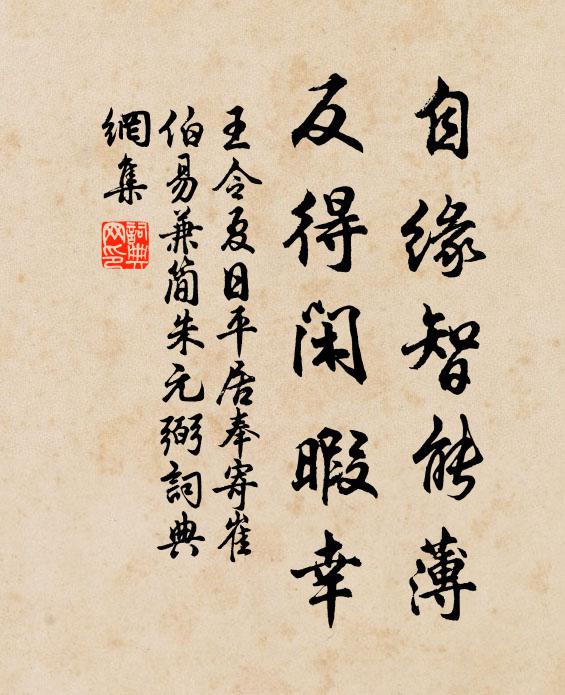 自緣智能薄
反得閑暇幸
王令夏日平居奉寄崔
伯易兼簡朱元弼詞典
網集
詞典
网印